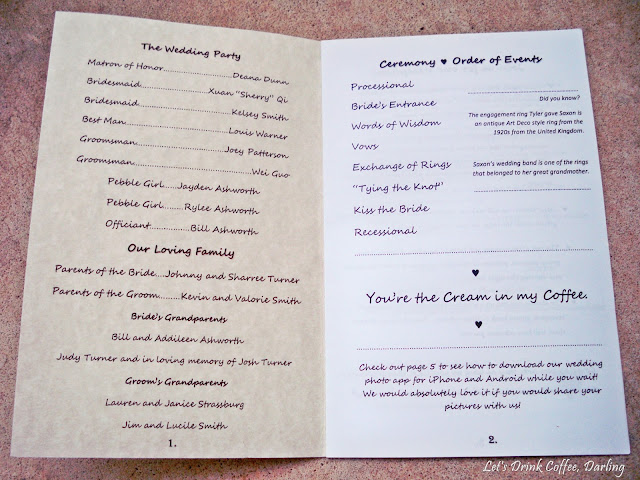 The Wedding Party
Matron of Honor..............................Deana Dunn
Bridesmaid..............................Xuan "Sherry" Qi
Bridesmaid..............................Kelsey Smith
Best Man..............................Louis Warner
Groomsman..............................Joey Patterson
Groomsman..............................Wei Guo
Pebble Girl.......Jayden Ashworth
Pebble Girl.......Rylee Ashworth
Officiant...............Bill Ashworth
Our Loving Family
Parents of the Bride....Johnny and Sharree Turner
Parents of the Groom.........Kevin and Valorie Smith
Bride's Grandparents
Bill and Addileen Ashworth
Judy Turner and in loving memory of Josh Turner
Groom's Grandparents
Lauren and Janice Strassburg
Jim and Lucile Smith
1.
Ceremony ♥ Order of Events
Processional
Bride's Entrance
Words of Wisdom
Vows
Exchange of Rings
"Tying the Knot"
Kiss the Bride
Recessional
Did you know?
The engagement ring Tyler gave Saxon is
an antique Art Deco style ring from the
1920s from the United Kingdom.
Saxon's wedding band is one of the rings
that belonged to her great grandmother.
♥
You're the Cream in my Coffee.
♥
Check out page 5 to see how to download our wedding
photo app for iPhone and Android while you wait!
We would absolutely love it if you would share your
pictures with us!
2.
Let's Drink Coffee, Darling